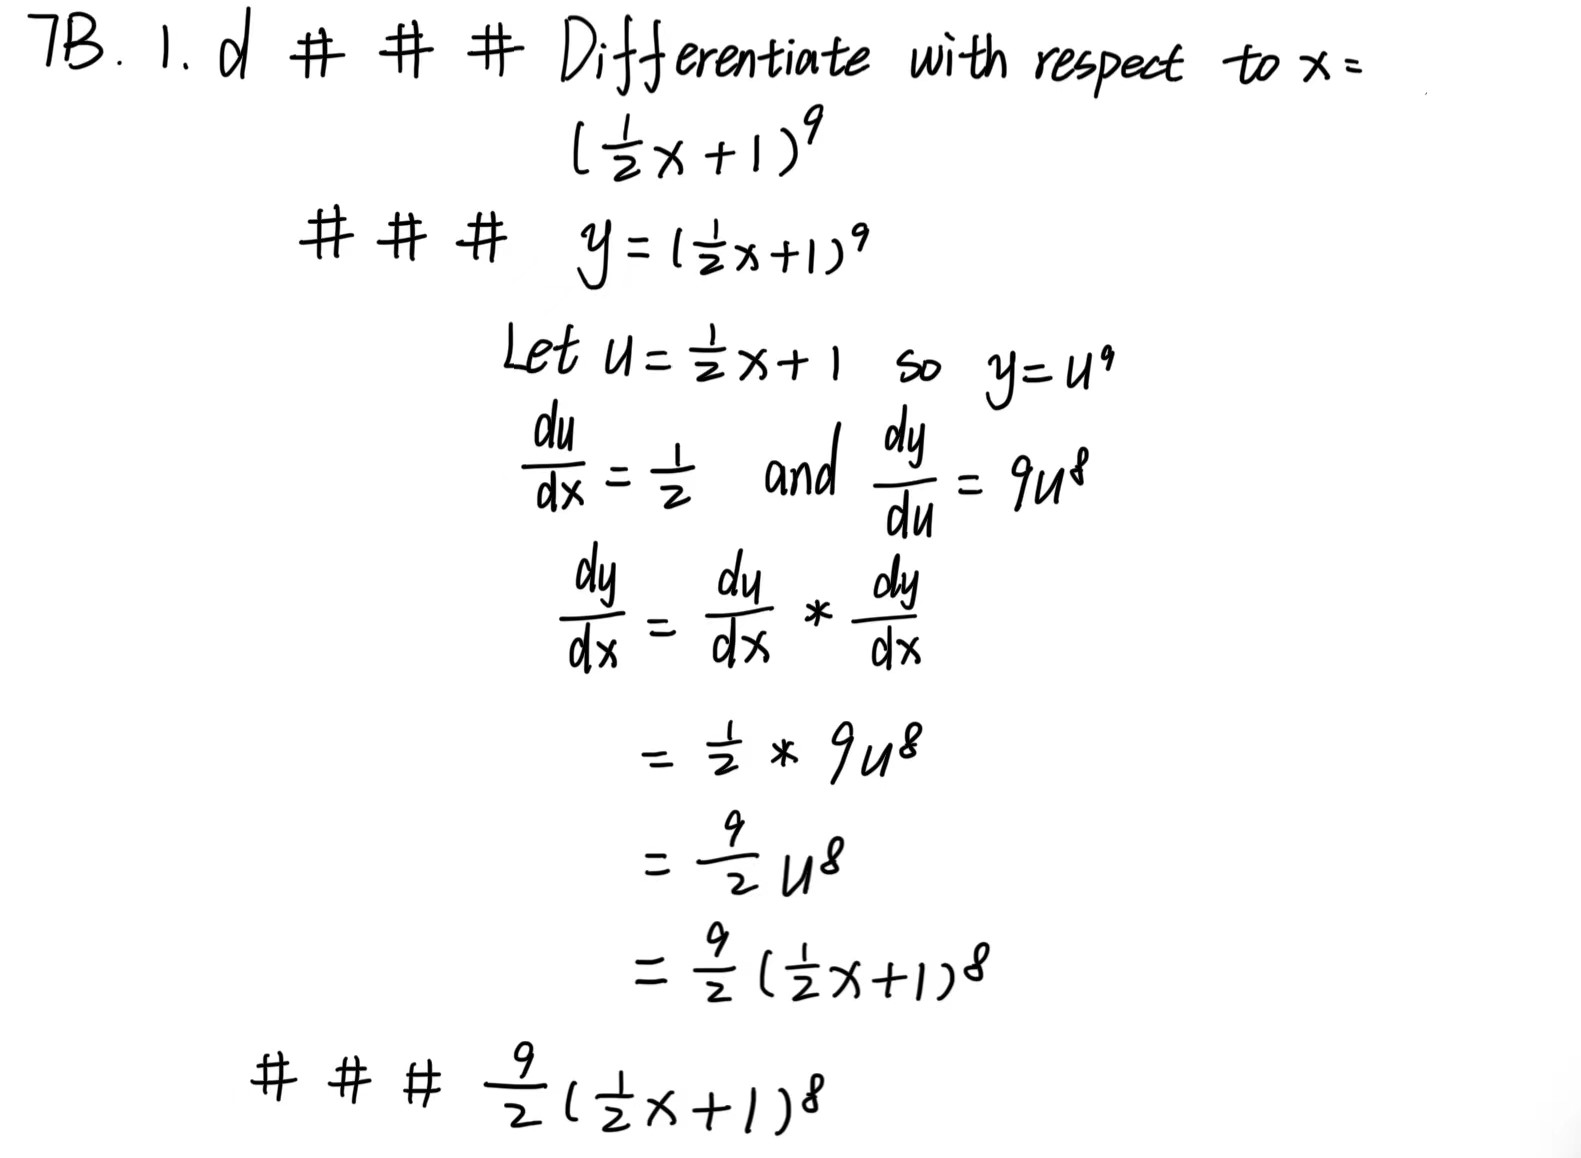 7B. 1. d # # # Differentiate with respect to x =
(1/2 x + 1)⁹
# # # y = (1/2 x + 1)⁹
Let u = 1/2 x + 1 so y = u⁹
du/dx = 1/2 and dy/du = 9u⁸
dy/dx = du/dx * dy/dx
= 1/2 * 9u⁸
= 9/2 u⁸
= 9/2 (1/2 x + 1)⁸
# # # 9/2 (1/2 x + 1)⁸